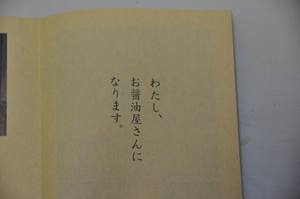 わたし、
お醬油屋さんに
なります。